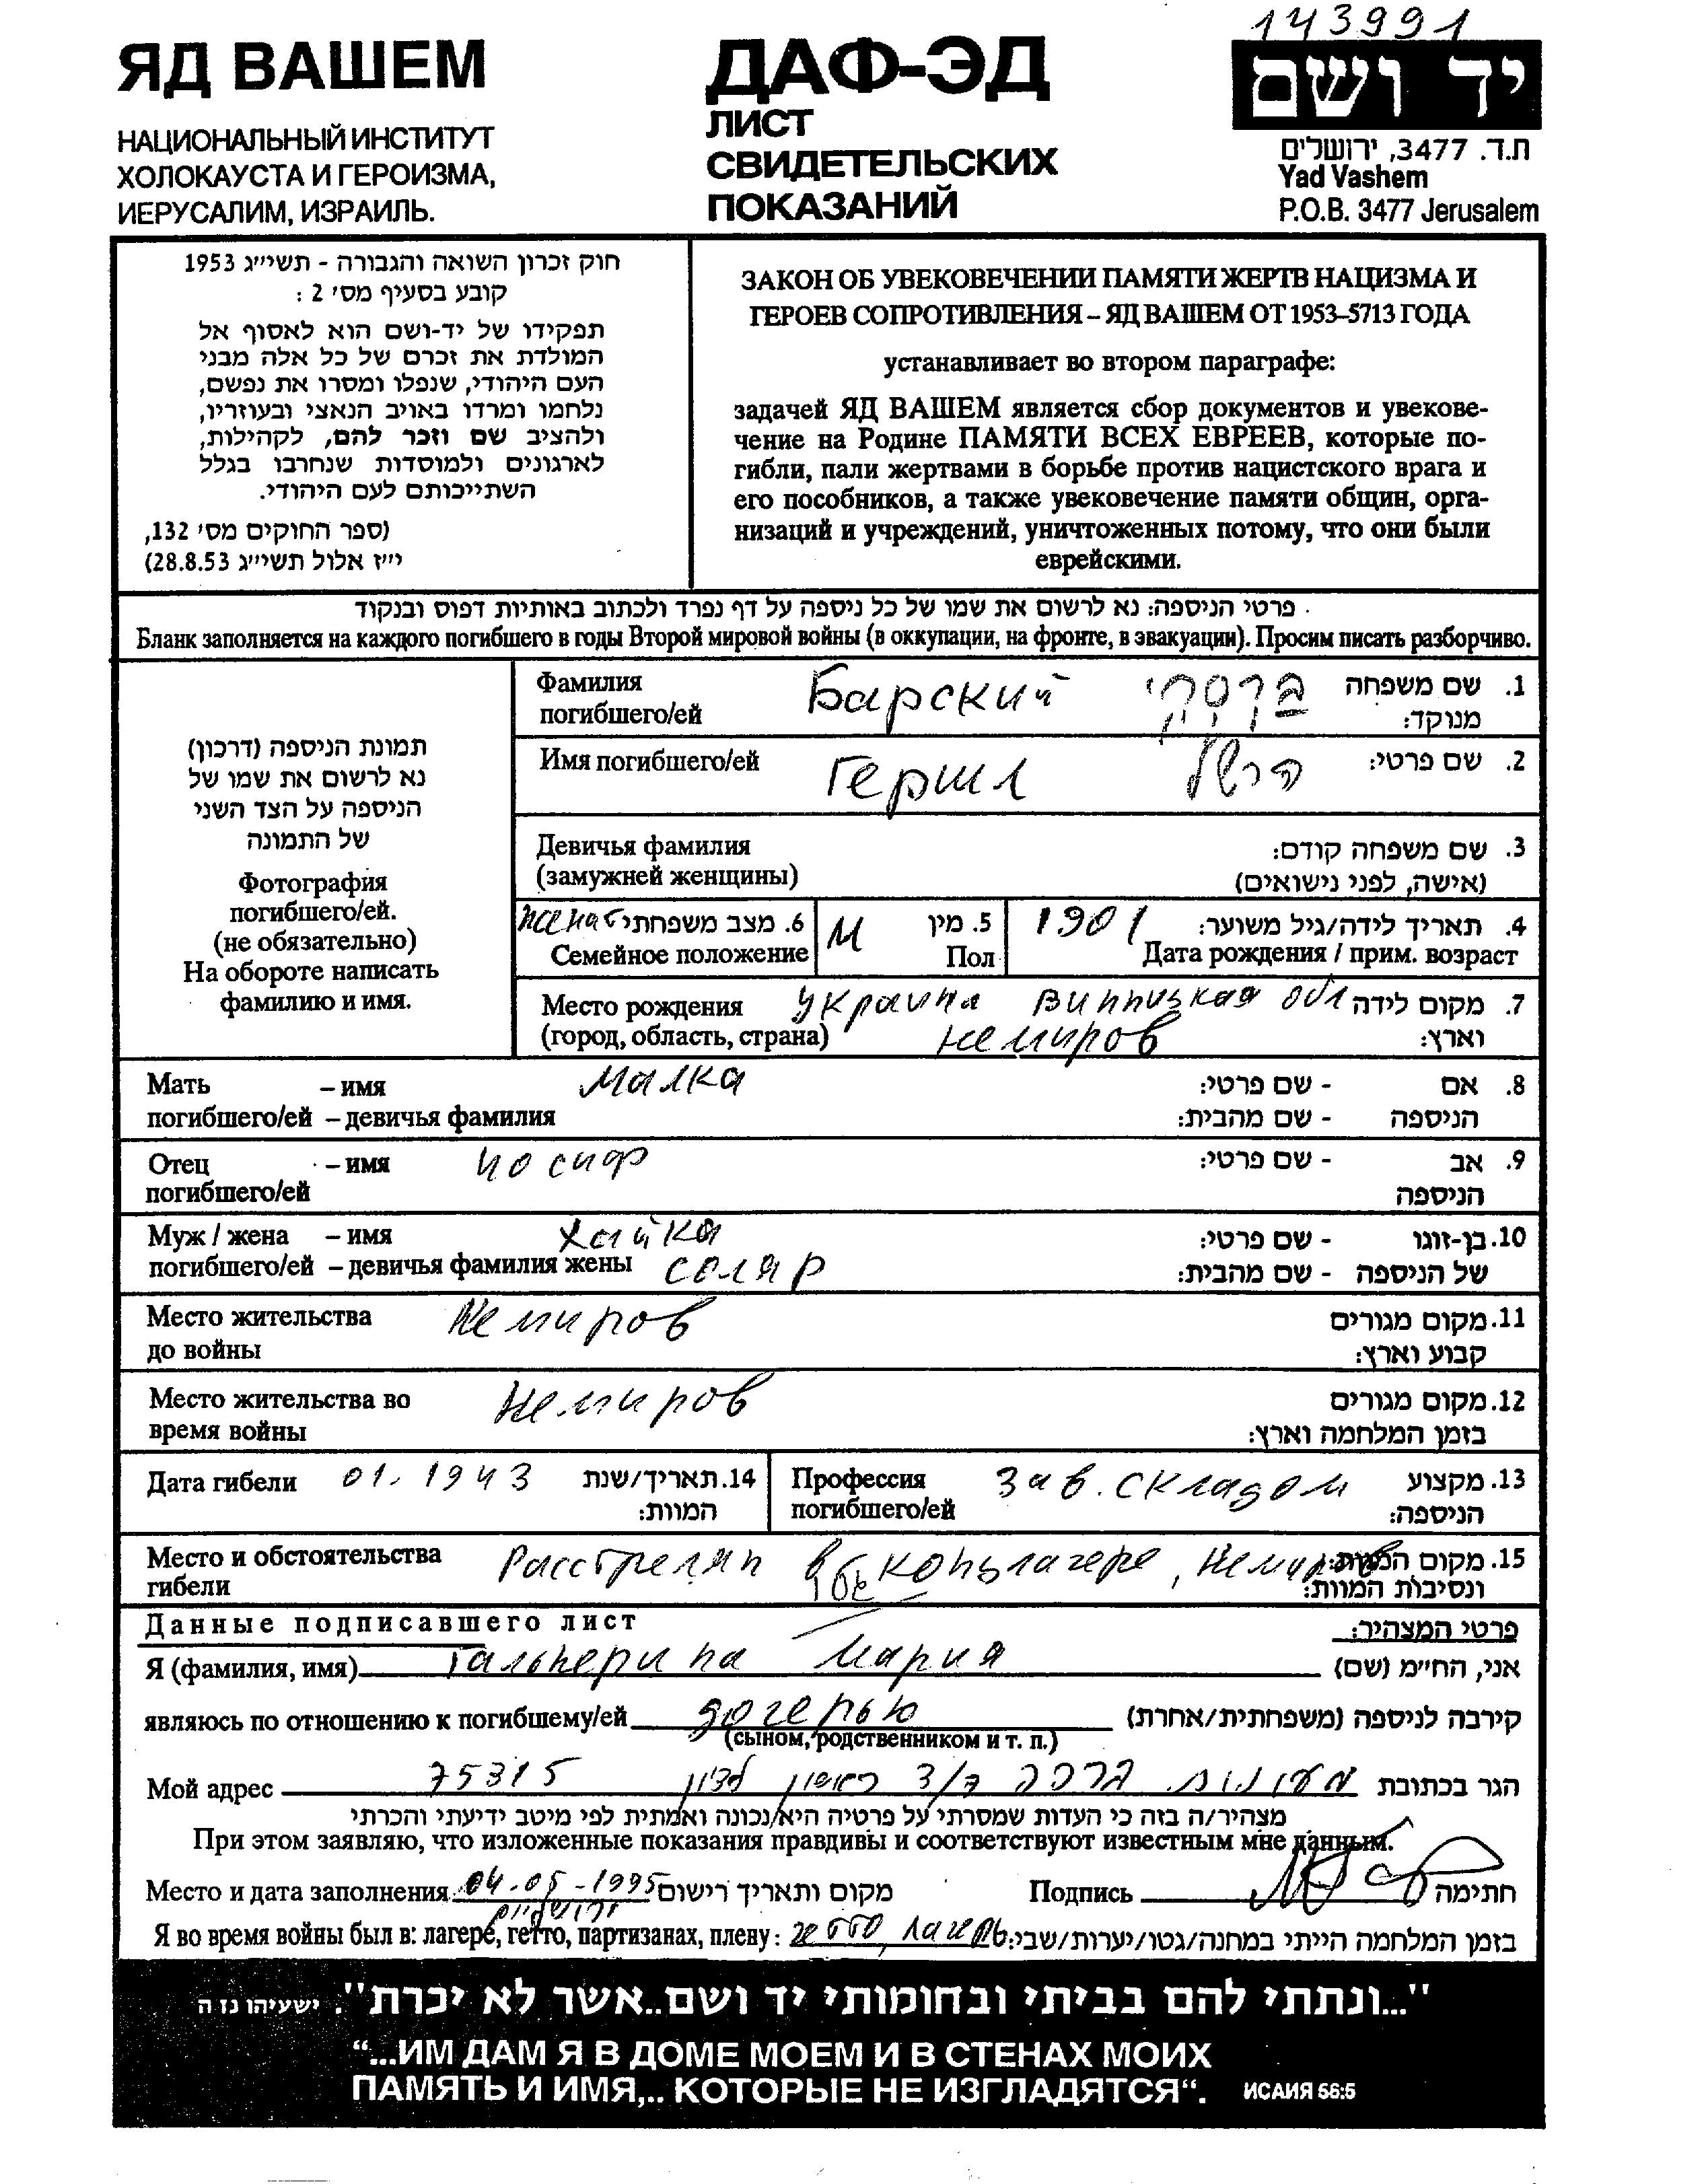 143991
ЯД ВАШЕМ
НАЦИОНАЛЬНЫЙ ИНСТИТУТ
ХОЛОКАУСТА И ГЕРОИЗМА,
ИЕРУСАЛИМ, ИЗРАИЛЬ.
ДАФ-ЭД
ЛИСТ
СВИДЕТЕЛЬСКИХ
ПОКАЗАНИЙ
יד ושם
ת.ד. 3477, ירושלים
Yad Vashem
P.O.B. 3477 Jerusalem
חוק זכרון השואה והגבורה - תשי״ג 1953
קובע בסעיף מס׳ 2 :
תפקידו של יד-ושם הוא לאסוף אל
המולדת את זכרם של כל אלה מבני
העם היהודי, שנפלו ומסרו את נפשם,
נלחמו ומרדו באויב הנאצי ובעוזריו,
ולהציב שם וזכר להם, לקהילות,
לארגונים ולמוסדות שנחרבו בגלל
השתייכותם לעם היהודי.
(ספר החוקים מס׳ 132,
י״ז אלול תשי״ג 28.8.53)
ЗАКОН ОБ УВЕКОВЕЧЕНИИ ПАМЯТИ ЖЕРТВ НАЦИЗМА И
ГЕРОЕВ СОПРОТИВЛЕНИЯ – ЯД ВАШЕМ ОТ 1953–5713 ГОДА
устанавливает во втором параграфе:
задачей ЯД ВАШЕМ является сбор документов и увекове-
чение на Родине ПАМЯТИ ВСЕХ ЕВРЕЕВ, которые по-
гибли, пали жертвами в борьбе против нацистского врага и
его пособников, а также увековечение памяти общин, орга-
низаций и учреждений, уничтоженных потому, что они были
еврейскими.
פרטי הניספה: נא לרשום את שמו של כל ניספה על דף נפרד ולכתוב באותיות דפוס ובנקוד
Бланк заполняется на каждого погибшего в годы Второй мировой войны (в оккупации, на фронте, в эвакуации). Просим писать разборчиво.
תמונת הניספה (דרכון)
נא לרשום את שמו של
הניספה על הצד השני
של התמונה
Фотография
погибшего/ей.
(не обязательно)
На обороте написать
фамилию и имя.
Фамилия Барский ברסקי 1. שם משפחה
погибшего/ей מנוקד:
Имя погибшего/ей Гершл הרשל 2. שם פרטי:
Девичья фамилия 3. שם משפחה קודם:
(замужней женщины) (אישה, לפני נישואים)
женат 6. מצב משפחתי М 5. מין 1901 4. תאריך לידה/גיל משוער:
Семейное положение Пол Дата рождения / прим. возраст
Место рождения Украина Винницкая обл 7. מקום לידה
(город, область, страна) Немиров וארץ:
Мать – имя Малка 8. אם - שם פרטי:
погибшего/ей – девичья фамилия הניספה - שם מהבית:
Отец – имя Иосиф 9. אב - שם פרטי:
погибшего/ей הניספה
Муж / жена – имя Хайка 10. בן-זוגו - שם פרטי:
погибшего/ей – девичья фамилия жены Соляр של הניספה - שם מהבית:
Место жительства Немиров 11. מקום מגורים
до войны קבוע וארץ:
Место жительства во Немиров 12. מקום מגורים
время войны בזמן המלחמה וארץ:
Дата гибели 01.1943 14. תאריך/שנת
המוות:
Профессия Зав. складом 13. מקצוע
погибшего/ей הניספה:
Место и обстоятельства Расстрелян в концлагере, Немиров 15. מקום המוות:
гибели ונסיבות המוות:
Данные подписавшего лист פרטי המצהיר:
Я (фамилия, имя) Гальперина Мария אני, החי״מ (שם)
являюсь по отношению к погибшему/ей дочерью קירבה לניספה (משפחתית/אחרת)
(сыном, родственником и т. п.)
Мой адрес 75315 ראשון לציון 3/ד הגר בכתובת
מצהיר/ה בזה כי העדות שמסרתי על פרטיה היא נכונה ואמתית לפי מיטב ידיעתי והכרתי
При этом заявляю, что изложенные показания правдивы и соответствуют известным мне данным.
Место и дата заполнения 04.05-1995 מקום ותאריך רישום Подпись חתימה
ירושלים
Я во время войны был в: лагере, гетто, партизанах, плену: гетто, лагерь בזמן המלחמה הייתי במחנה/גטו/יערות/שבי:
"...ונתתי להם בביתי ובחומותי יד ושם..אשר לא יכרת". ישעיהו נז ה
“...ИМ ДАМ Я В ДОМЕ МОЕМ И В СТЕНАХ МОИХ
ПАМЯТЬ И ИМЯ,.. КОТОРЫЕ НЕ ИЗГЛАДЯТСЯ“. ИСАИЯ 56:5